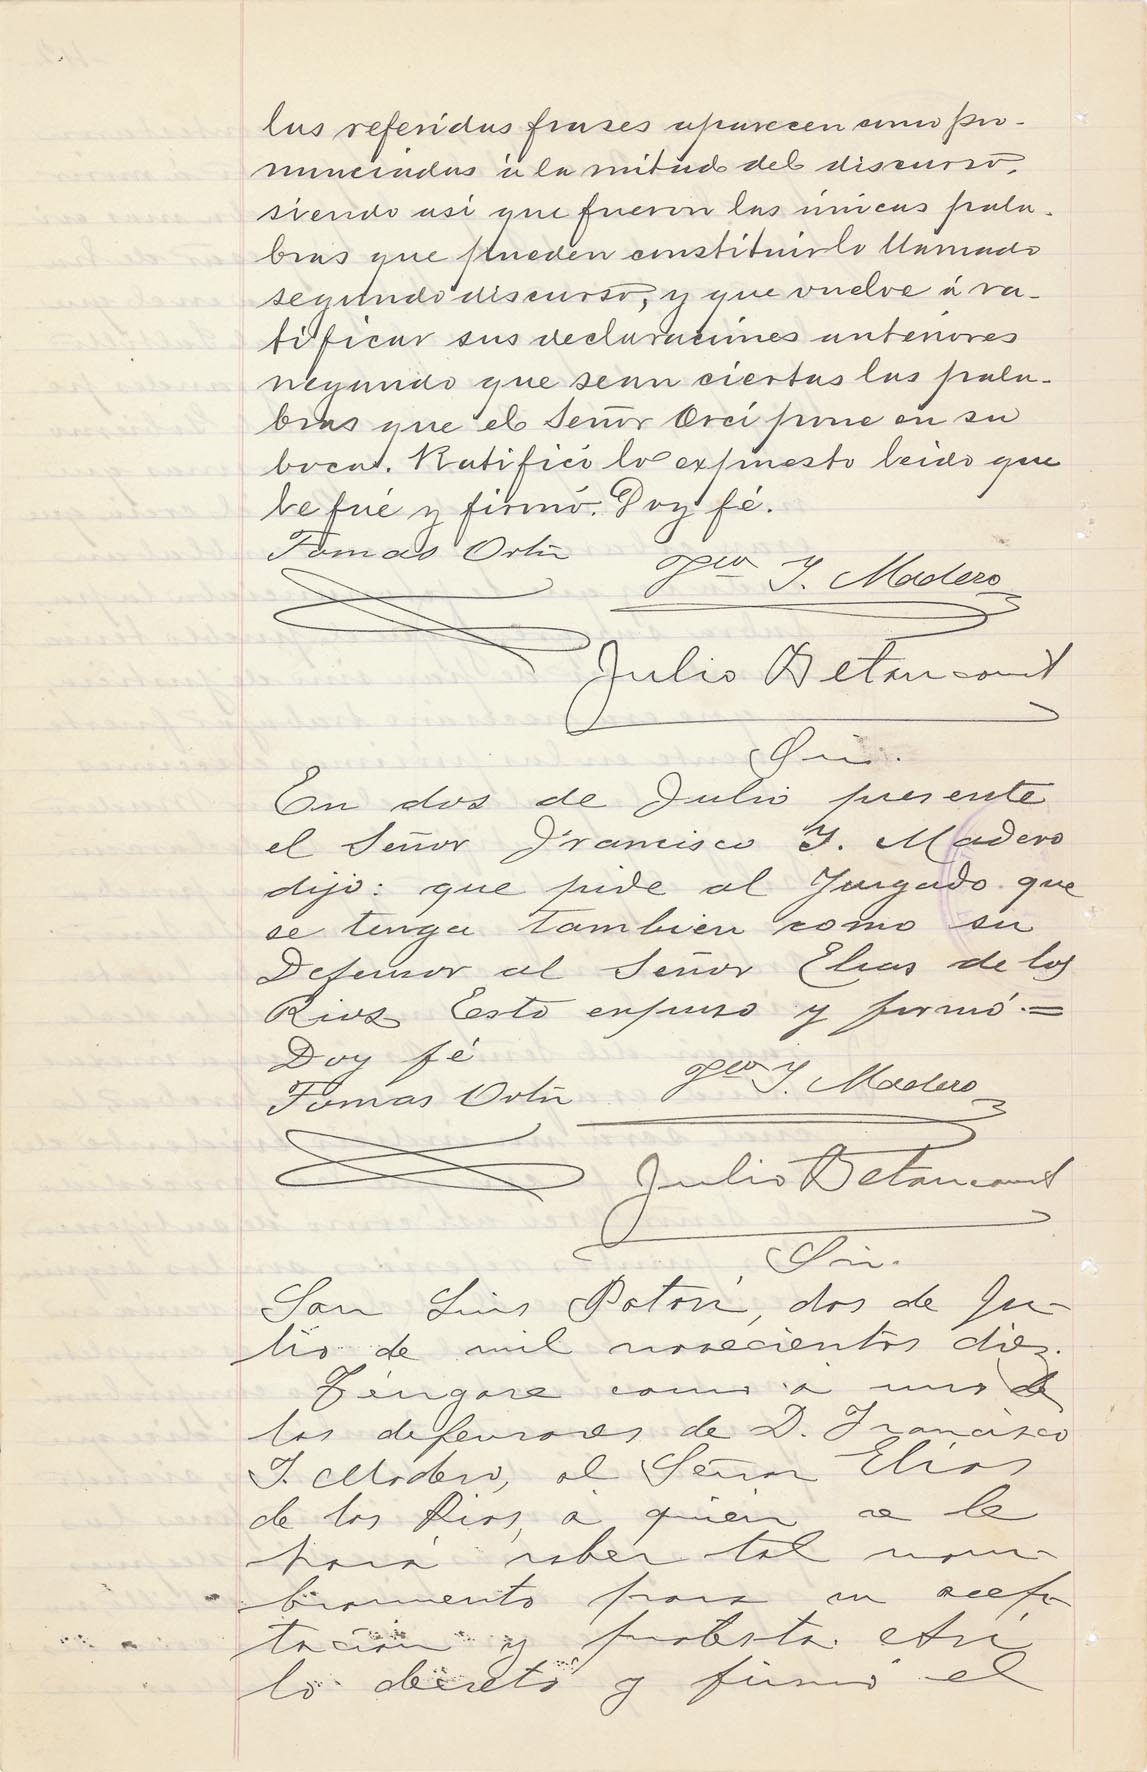 las referidas frases aparecen como pro-
nunciadas á la mitad del discurso,
siendo así que fueron las únicas pala-
bras que pueden constituir lo llamado
segundo discurso, y que vuelve á ra-
tificar sus declaraciones anteriores
negando que sean ciertas las pala-
bras que el Señor Orcí pone en su
boca. Ratificó lo expuesto leido que
le fué y firmó. Doy fé.
Tomas Ortiz Fco I. Madero
Julio Betancourt
Srio.
En dos de Julio presente
el Señor Francisco I. Madero
dijo: que pide al Juzgado que
se tenga tambien como su
Defensor al Señor Elias de los
Rios Esto expuso y firmó.=
Doy fé
Tomas Ortiz Fco I. Madero
Julio Betancourt
Srio.
San Luis Potosí, dos de Ju-
lio de mil novecientos diez.
Téngase como á uno de
los defensores de D. Francisco
I. Madero, al Señor Elías
de los Rios, á quién se le
hará saber tal nom-
bramiento para su acep-
tación y protesta. Así
lo decretó y firmó el